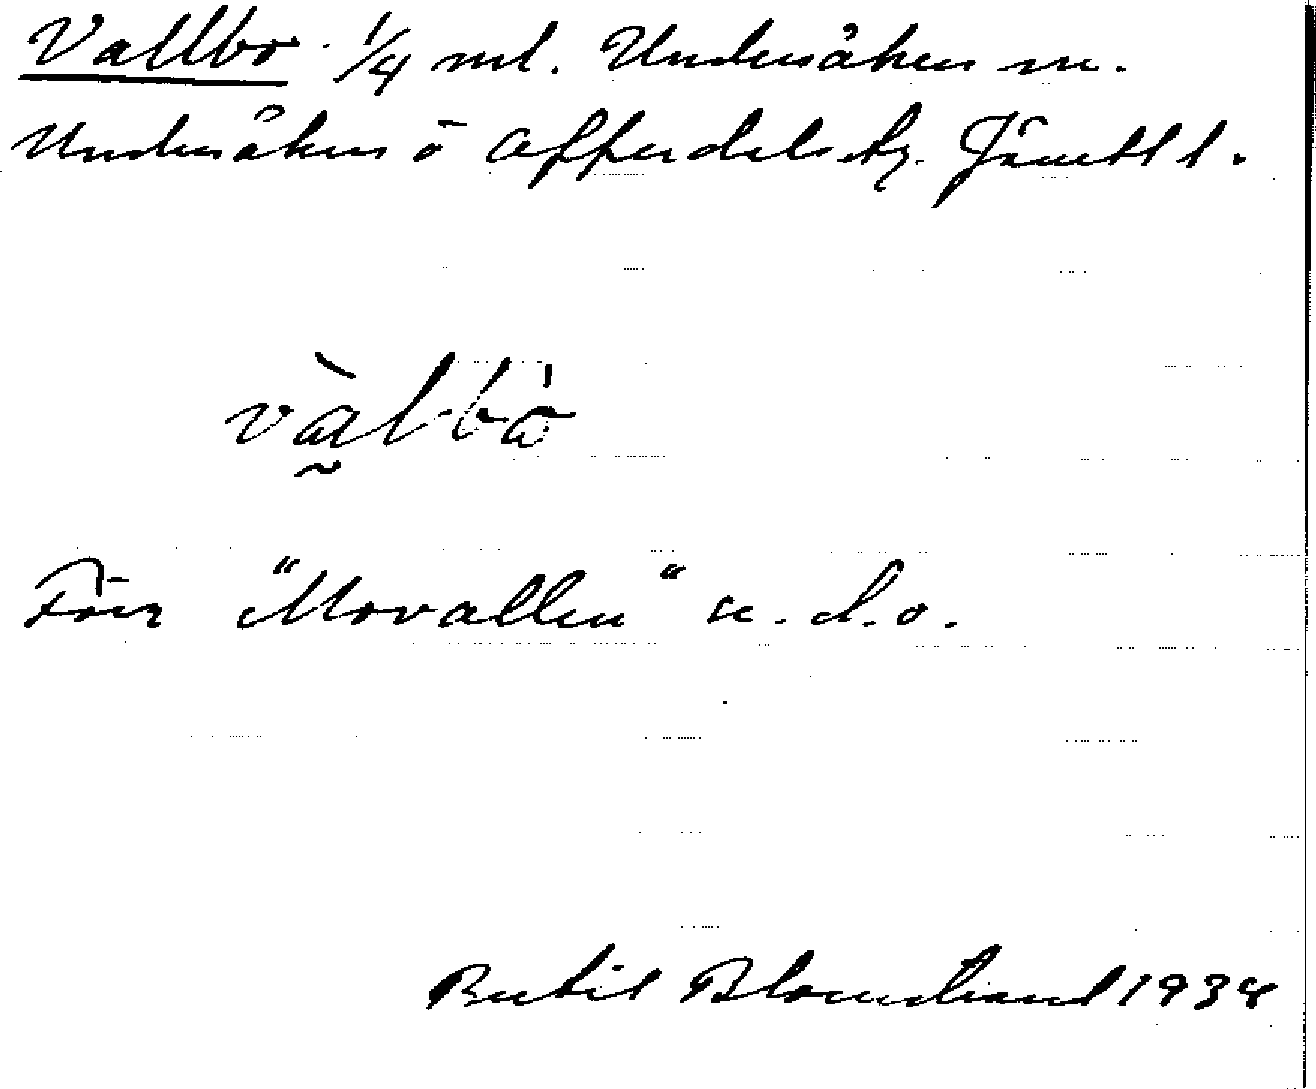 Vallbo 1/4 ml. Undersåkers sn.
Undersåkers o Offerdals tg. Jämtl l.
vàl-bò
Förr "Movallen" se. d.o.
Bertil Blomstrand 1934